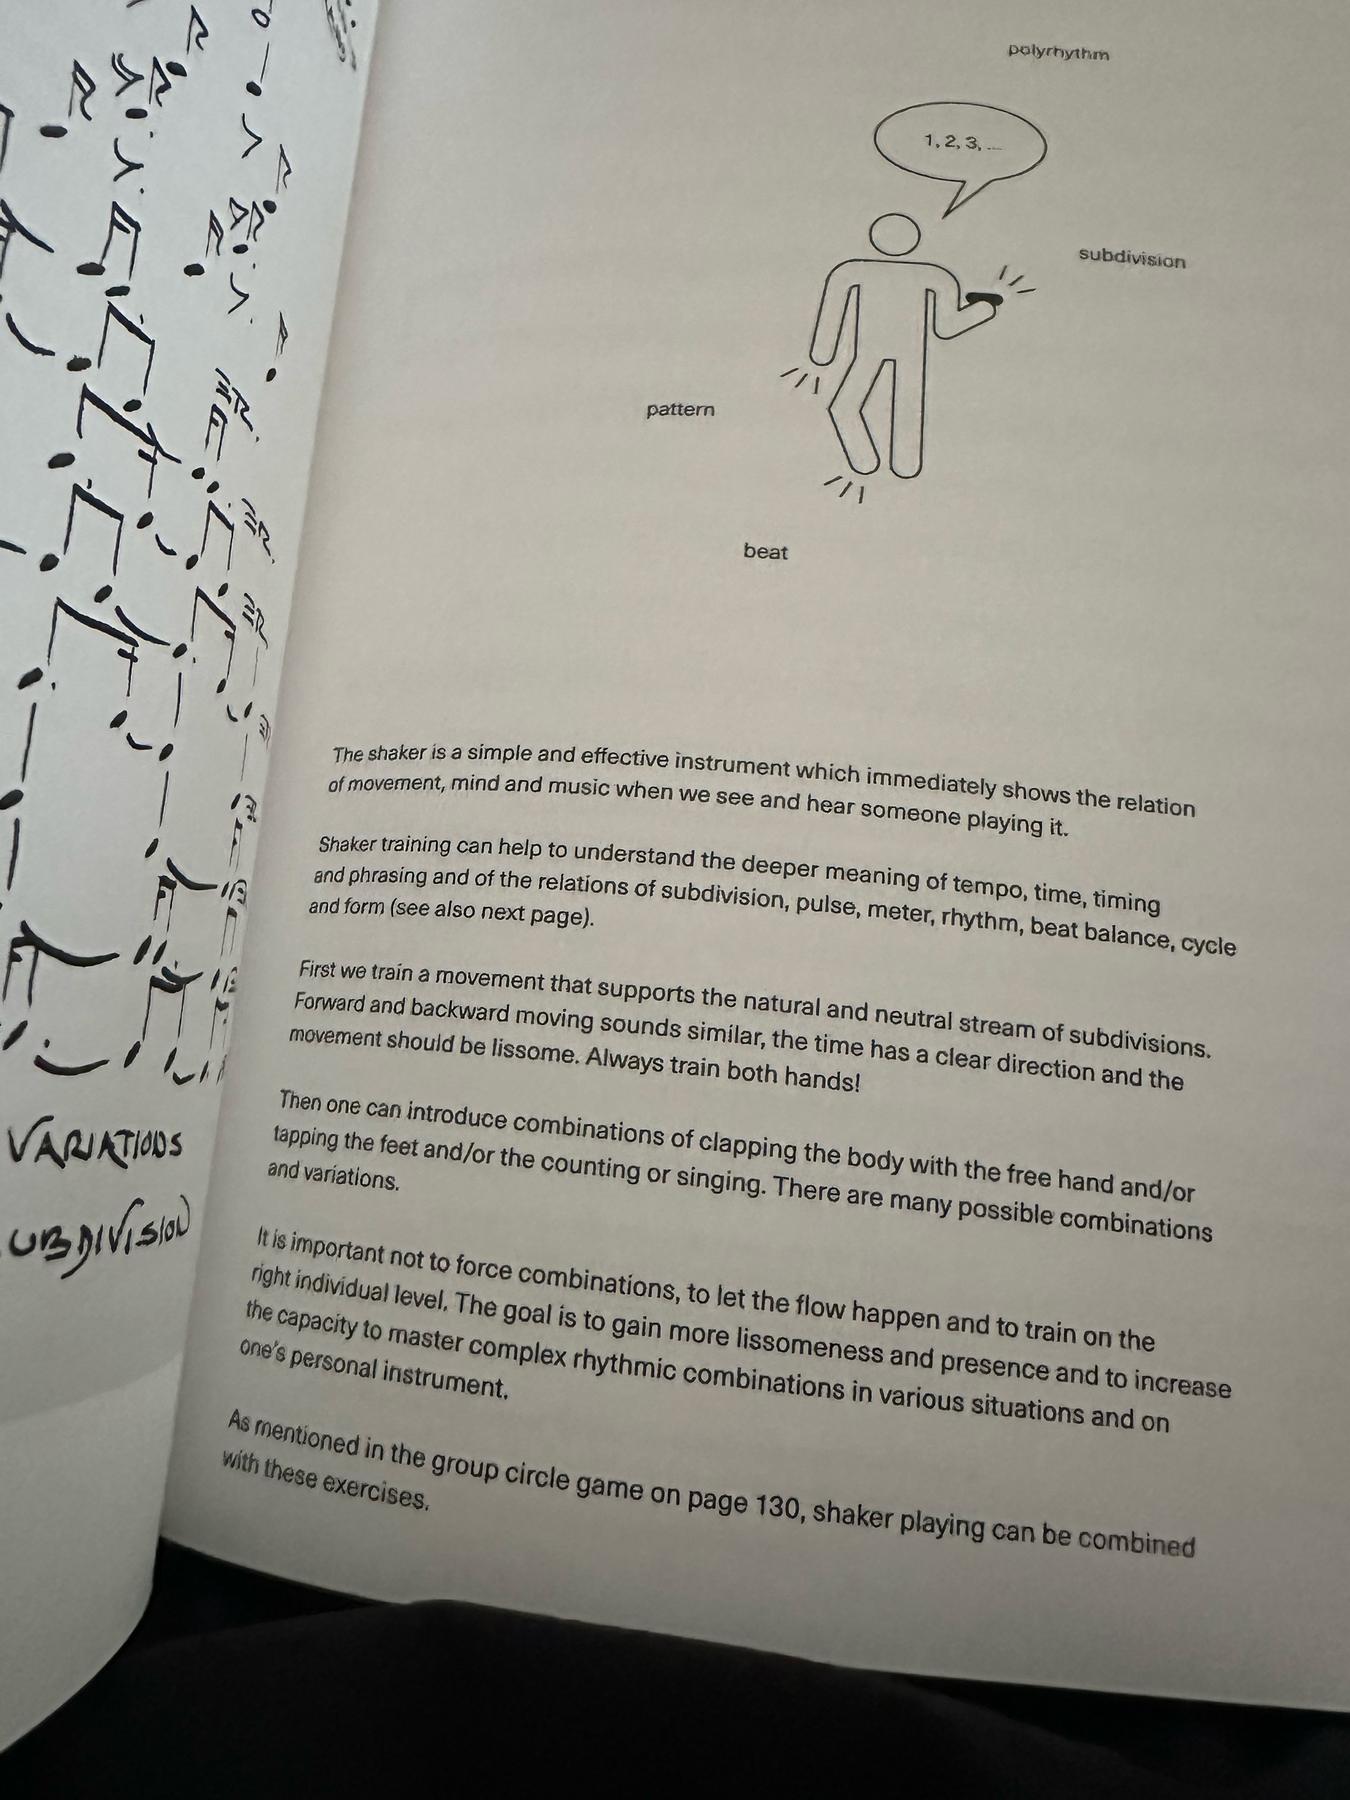 polyrhythm
1, 2, 3, ...
subdivision
pattern
beat
The shaker is a simple and effective instrument which immediately shows the relation
of movement, mind and music when we see and hear someone playing it.
Shaker training can help to understand the deeper meaning of tempo, time, timing
and phrasing and of the relations of subdivision, pulse, meter, rhythm, beat balance, cycle
and form (see also next page).
First we train a movement that supports the natural and neutral stream of subdivisions.
Forward and backward moving sounds similar, the time has a clear direction and the
movement should be lissome. Always train both hands!
Then one can introduce combinations of clapping the body with the free hand and/or
tapping the feet and/or the counting or singing. There are many possible combinations
and variations.
It is important not to force combinations, to let the flow happen and to train on the
right individual level. The goal is to gain more lissomeness and presence and to increase
the capacity to master complex rhythmic combinations in various situations and on
one's personal instrument.
As mentioned in the group circle game on page 130, shaker playing can be combined
with these exercises.
VARIATIONS
UBDIVISION